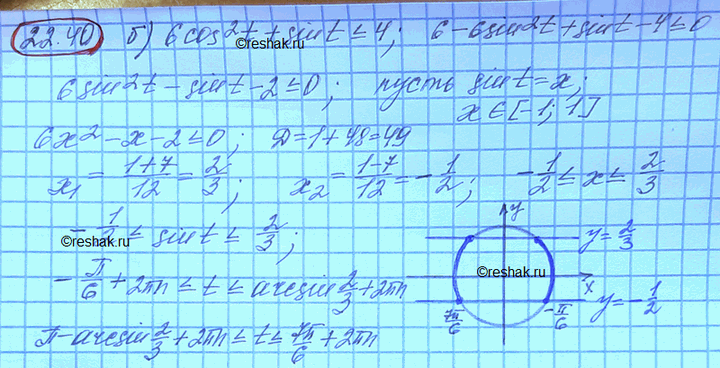 22.40 б) 6cos²t + sint ≤ 4; 6 - 6sin²t + sint - 4 ≤ 0
6sin²t - sint - 2 ≤ 0; пусть sint = x;
x ∈ [-1; 1]
6x² - x - 2 ≤ 0; D = 1 + 48 = 49
x₁ = (1+7)/12 = 2/3; x₂ = (1-7)/12 = -1/2; -1/2 ≤ x ≤ 2/3
-1/2 ≤ sint ≤ 2/3;
-π/6 + 2πn ≤ t ≤ arcsin 2/3 + 2πn
π - arcsin 2/3 + 2πn ≤ t ≤ 7π/6 + 2πn
y
y = 2/3
x
y = -1/2
7π/6
-π/6
©reshak.ru
©reshak.ru
©reshak.ru